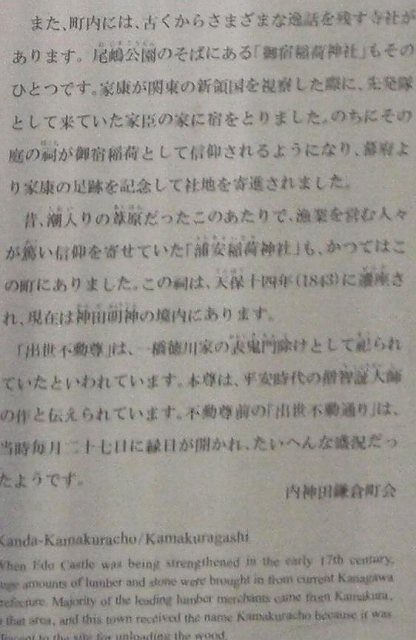 また、町内には、古くからさまざまな逸話を残す寺社が
あります。尾嶋公園のそばにある「御宿稲荷神社」もその
ひとつです。家康が関東の新領国を視察した際に、先発隊
として来ていた家臣の家に宿をとりました。のちにその
庭の祠が御宿稲荷として信仰されるようになり、幕府よ
り家康の足跡を記念して社地を寄進されました。
昔、潮入りの葦原だったこのあたりで、漁業を営む人々
が篤い信仰を寄せていた「浦安稲荷神社」も、かつてはこ
の町にありました。この祠は、天保十四年(1843)に遷座さ
れ、現在は神田明神の境内にあります。
「出世不動尊」は、一橋徳川家の表鬼門除けとして祀られ
ていたといわれています。本尊は、平安時代の智証大師
の作と伝えられています。不動尊前の「出世不動通り」は、
当時毎月二十七日に縁日が開かれ、たいへんな盛況だっ
たようです。
内神田鎌倉町会
Kanda-Kamakuracho/Kamakuragashi
When Edo Castle was being strengthened in the early 17th century,
huge amounts of lumber and stone were brought in from current Kanagawa
Prefecture. Majority of the leading lumber merchants came from Kamakura,
in that area, and this town received the name Kamakuracho because it was
the site for unloading the wood.